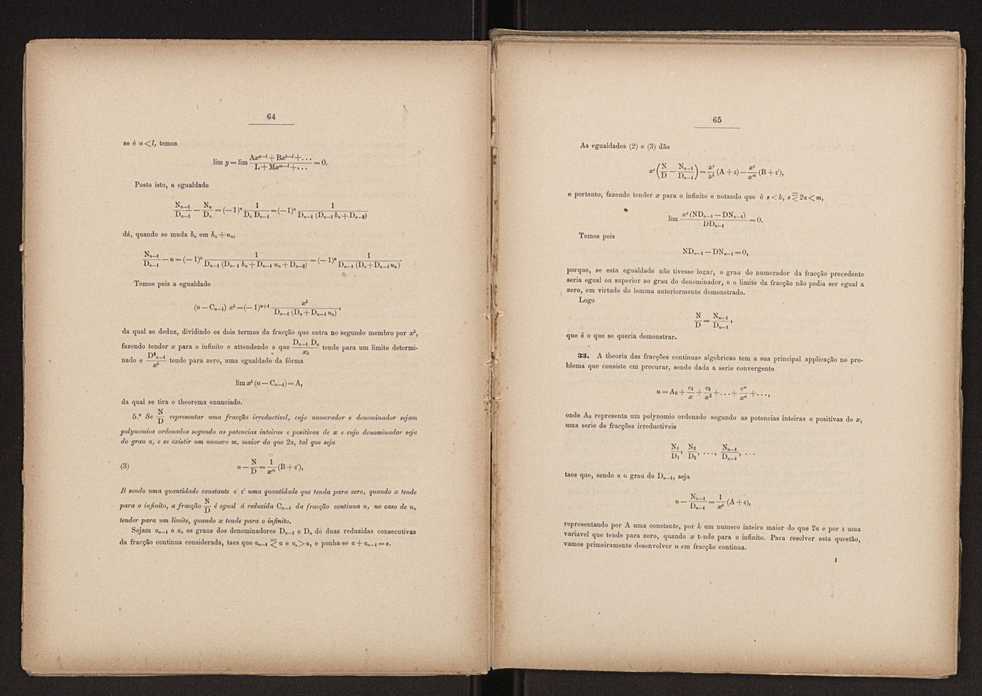 64
se é a<l, temos
lim y = lim (Ax^{a—l} + Bx^{b—l} + ...)/(L + Mx^{m—l} + ...) = 0.
Posto isto, a egualdade
N_{n—1}/D_{n—1} — N_n/D_n = (—1)^n 1/(D_n D_{n—1}) = (—1)^n 1/(D_{n—1} (D_{n—1} b_n + D_{n—2}))
dá, quando se muda b_n em b_n + u_n,
N_{n—1}/D_{n—1} — u = (—1)^n 1/(D_{n—1} (D_{n—1} b_n + D_{n—1} u_n + D_{n—2})) = (—1)^n 1/(D_{n—1} (D_n + D_{n—1} u_n))
Temos pois a egualdade
(u — C_{n—1}) x^k = (—1)^{n+1} x^k/(D_{n—1} (D_n + D_{n—1} u_n)),
da qual se deduz, dividindo os dois termos da fracção que entra no segundo membro por x^k,
fazendo tender x para o infinito e attendendo a que D_{n—1} D_n/x^k tende para um limite determi-
nado e D²_{n—1}/x^k tende para zero, uma egualdade da fórma
lim x^k (u — C_{n—1}) = A,
da qual se tira o theorema enunciado.
5.º Se N/D representar uma fracção irreductivel, cujo numerador e denominador sejam
polynomios ordenados segundo as potencias inteiras e positivas de x e cujo denominador seja
do grau a, e se existir um numero m, maior do que 2a, tal que seja
(3) u — N/D = 1/x^m (B + ε'),
B sendo uma quantidade constante e ε' uma quantidade que tenda para zero, quando x tende
para o infinito, a fracção N/D é egual á reduzida C_{n—1} da fracção continua u, no caso de u,
tender para um limite, quando x tende para o infinito.
Sejam a_{n—1} e a_n os graus dos denominadores D_{n—1} e D_n de duas reduzidas consecutivas
da fracção continua considerada, taes que a_{n—1} ⋜ a e a_n > a, e ponha-se a + a_{n—1} = s.
65
As egualdades (2) e (3) dão
x^s (N/D — N_{n—1}/D_{n—1}) = x^s/x^k (A + ε) — x^s/x^m (B + ε'),
e portanto, fazendo tender x para o infinito e notando que é s < k, s ⋜ 2a < m,
lim x^s (ND_{n—1} — DN_{n—1})/(DD_{n—1}) = 0.
Temos pois
ND_{n—1} — DN_{n—1} = 0,
porque, se esta egualdade não tivesse logar, o grau do numerador da fracção precedente
seria egual ou superior ao grau do denominador, e o limite da fracção não podia ser egual a
zero, em virtude do lemma anteriormente demonstrado.
Logo
N/D = N_{n—1}/D_{n—1},
que é o que se queria demonstrar.
33. A theoria das fracções continuas algebricas tem a sua principal applicação no pro-
blema que consiste em procurar, sendo dada a serie convergente
u = A_0 + c_1/x + c_2/x² + ... + c_n/x^n + ...,
onde A_0 representa um polynomio ordenado segundo as potencias inteiras e positivas de x,
uma serie de fracções irreductiveis
N_1/D_1, N_2/D_2, ..., N_{n—1}/D_{n—1}, ...
taes que, sendo a o grau de D_{n—1}, seja
u — N_{n—1}/D_{n—1} = 1/x^k (A + ε),
representando por A uma constante, por k um numero inteiro maior do que 2a e por ε uma
variavel que tende para zero, quando x t-nde para o infinito. Para resolver esta questão,
vamos primeiramente desenvolver u em fracção continua.
I